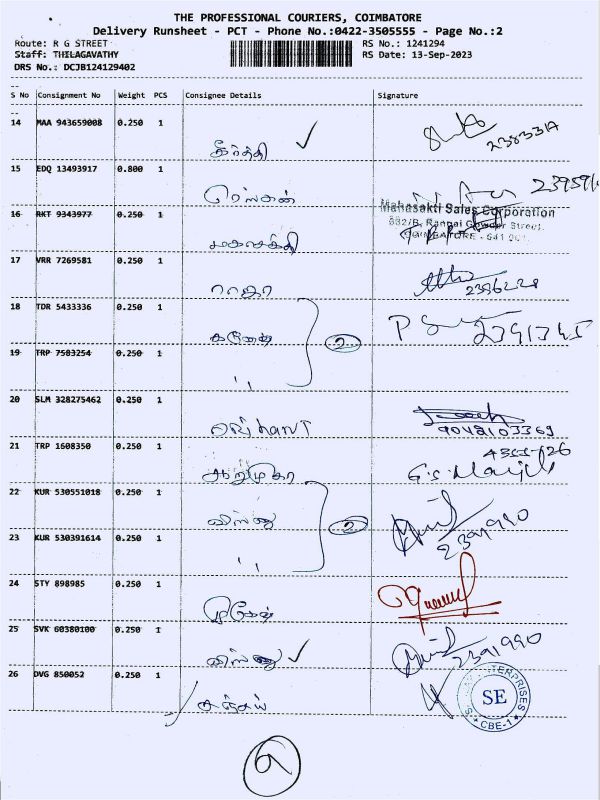 THE PROFESSIONAL COURIERS, COIMBATORE
Delivery Runsheet - PCT - Phone No.:0422-3505555 - Page No.:2
Route: R G STREET
RS No.: 1241294
Staff: THILAGAVATHY
RS Date: 13-Sep-2023
DRS No.: DCJB124129402
S No Consignment No Weight PCS Consignee Details Signature
14 MAA 943659008 0.250 1
2383317
கீர்த்தி
15 EDQ 13493917 0.800 1
Mahasakti Sales Corporation
882/B, Rangai Gowder Street,
COIMBATORE - 641 001.
16 RKT 9343977 0.250 1
மகாசக்தி
17 VRR 7269581 0.250 1
ராஜா
18 TDR 5433336 0.250 1
கணேஷ்
2
19 TRP 7583254 0.250 1
,,
20 SLM 328275462 0.250 1
9048103369
21 TRP 1608350 0.250 1
ஆறுமுகா
22 KUR 530551018 0.250 1
விஷ்ணு
2
2391990
23 KUR 530391614 0.250 1
,,
24 STY 898985 0.250 1
25 SVK 60380100 0.250 1
விஷ்ணு
2391990
26 DVG 850052 0.250 1
சஞ்சய்
ENTERPRISES
SE
CBE-1
9